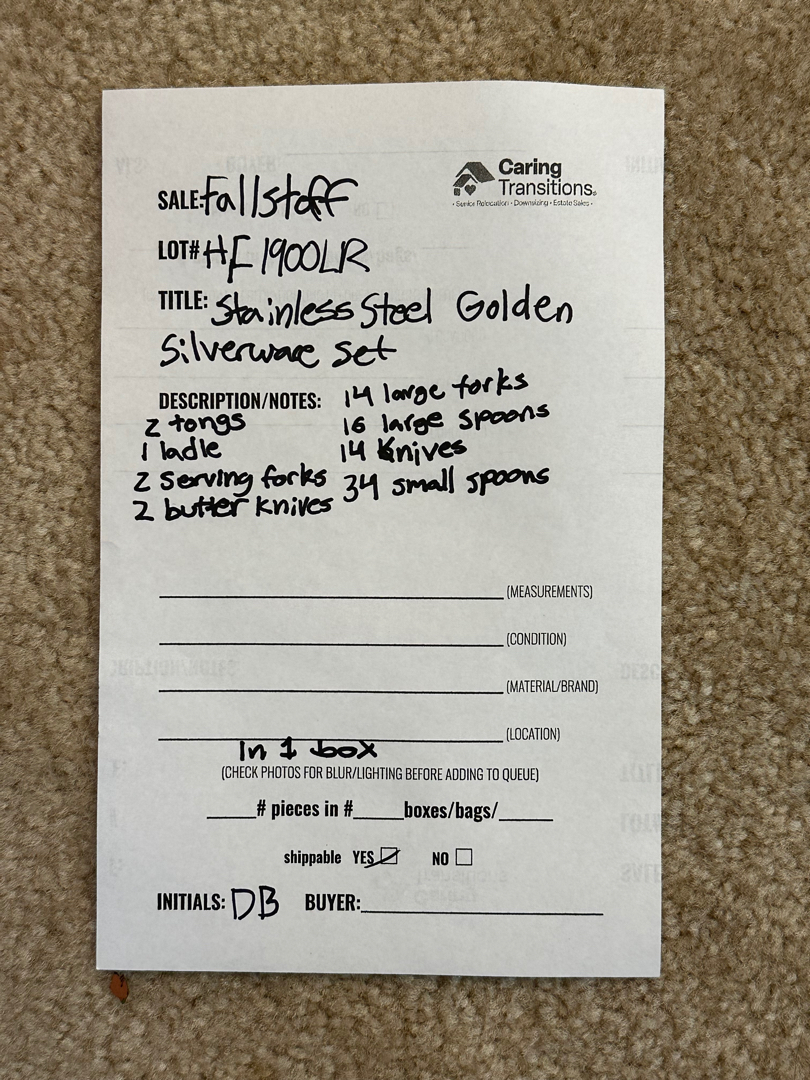 Caring
Transitions
• Senior Relocation • Downsizing • Estate Sales •
SALE: Fallstaff
LOT# HF1900LR
TITLE: Stainless Steel Golden
Silverware set
DESCRIPTION/NOTES: 14 large forks
2 tongs 16 large spoons
1 ladle 14 knives
2 serving forks 34 small spoons
2 butter knives
(MEASUREMENTS)
(CONDITION)
(MATERIAL/BRAND)
(LOCATION)
In 1 box
(CHECK PHOTOS FOR BLUR/LIGHTING BEFORE ADDING TO QUEUE)
____# pieces in #____boxes/bags/____
shippable YES ☑ NO ☐
INITIALS: DB BUYER: